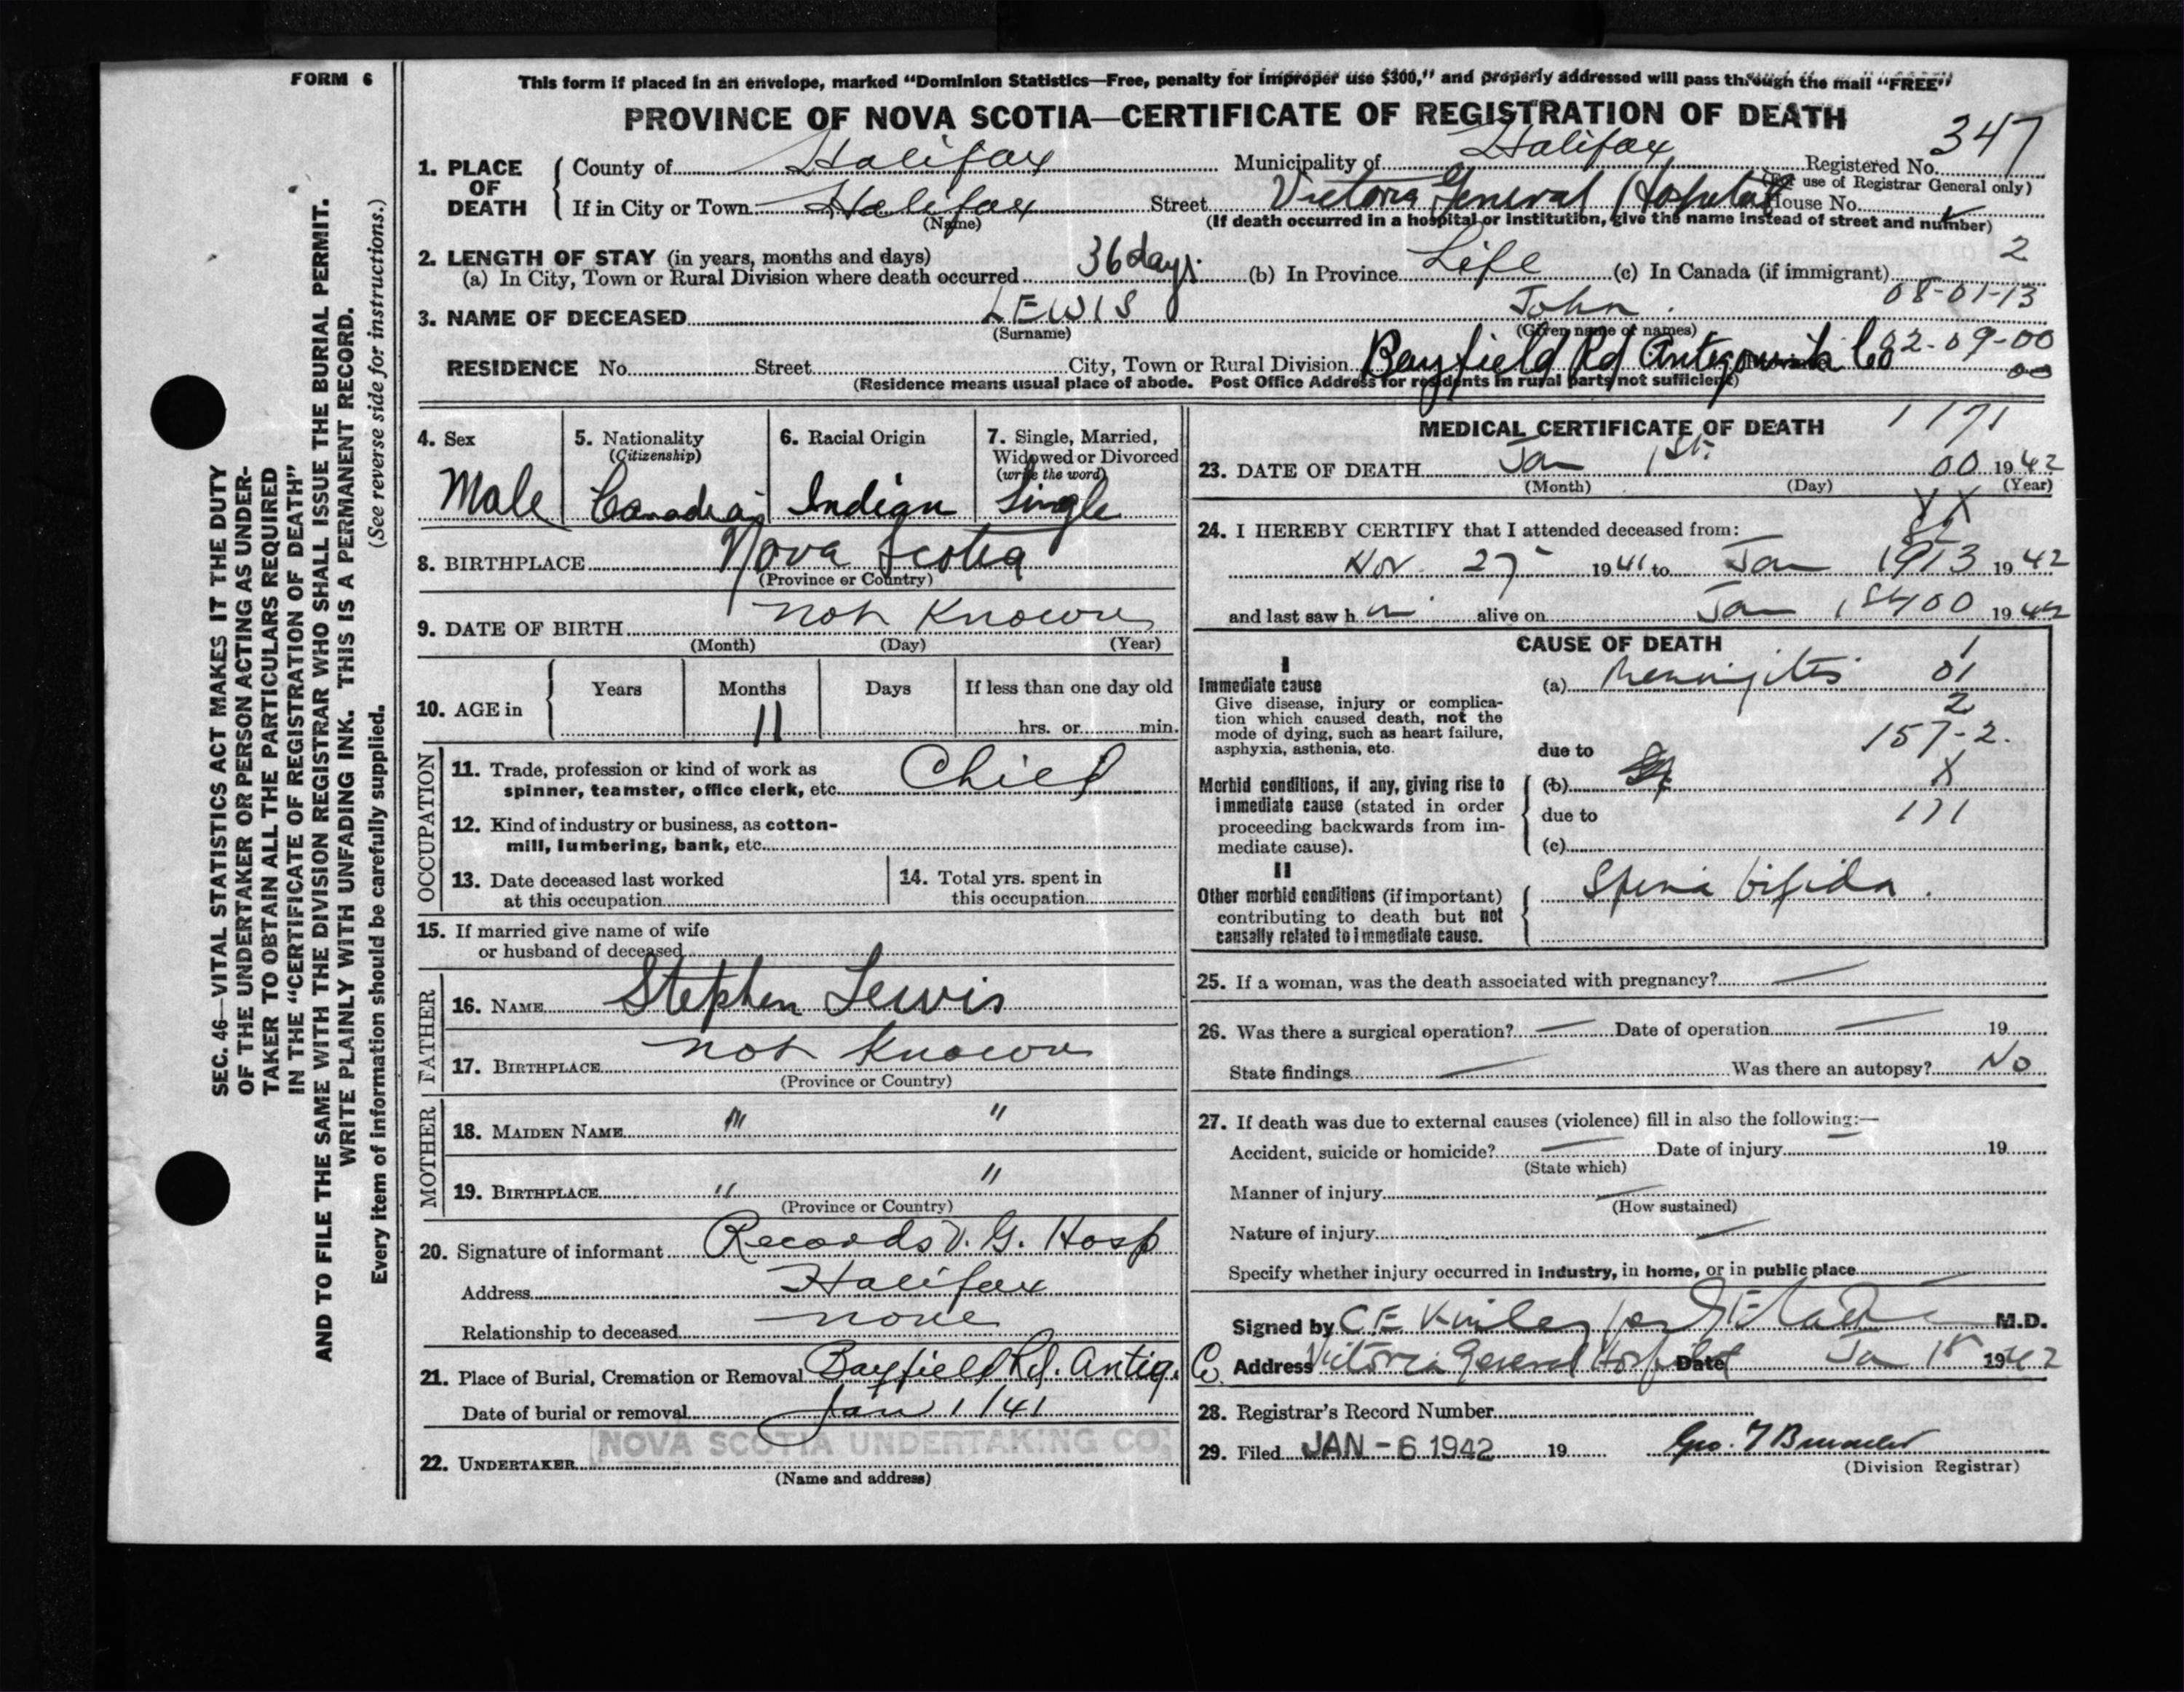 FORM 6
This form if placed in an envelope, marked "Dominion Statistics—Free, penalty for improper use $300," and properly addressed will pass through the mail "FREE"
PROVINCE OF NOVA SCOTIA—CERTIFICATE OF REGISTRATION OF DEATH
1. PLACE OF DEATH
County of Halifax Municipality of Halifax Registered No. 347
(For use of Registrar General only)
If in City or Town Halifax Street Victoria General Hospital House No.
(Name) (If death occurred in a hospital or institution, give the name instead of street and number)
2. LENGTH OF STAY (in years, months and days) 2
(a) In City, Town or Rural Division where death occurred 36 days (b) In Province Life (c) In Canada (if immigrant)
08-01-13
3. NAME OF DECEASED LEWIS John
(Surname) (Given name or names)
RESIDENCE No. Street City, Town or Rural Division Bayfield Rd Antigonish Co 02-09-00
00
(Residence means usual place of abode. Post Office Address for residents in rural parts not sufficient)
4. Sex
Male
5. Nationality
(Citizenship)
Canadian
6. Racial Origin
Indian
7. Single, Married,
Widowed or Divorced
(write the word)
Single
8. BIRTHPLACE Nova Scotia
(Province or Country)
9. DATE OF BIRTH not known
(Month) (Day) (Year)
10. AGE in Years Months Days If less than one day old
11 hrs. or min.
OCCUPATION
11. Trade, profession or kind of work as
spinner, teamster, office clerk, etc. Chief
12. Kind of industry or business, as cotton-
mill, lumbering, bank, etc.
13. Date deceased last worked
at this occupation
14. Total yrs. spent in
this occupation
15. If married give name of wife
or husband of deceased
FATHER
16. NAME Stephen Lewis
17. BIRTHPLACE not known
(Province or Country)
MOTHER
18. MAIDEN NAME " "
19. BIRTHPLACE " "
(Province or Country)
20. Signature of informant Records V. G. Hosp
Address Halifax
Relationship to deceased none
21. Place of Burial, Cremation or Removal Bayfield Rd. Antig. Co.
Date of burial or removal Jan 1/41
NOVA SCOTIA UNDERTAKING CO.
22. UNDERTAKER
(Name and address)
MEDICAL CERTIFICATE OF DEATH 1171
23. DATE OF DEATH Jan 1st. 00 1942
(Month) (Day) (Year)
XX
24. I HEREBY CERTIFY that I attended deceased from:
Nov. 27 1941 to Jan 1942
and last saw h alive on Jan 1 1942
CAUSE OF DEATH
I
Immediate cause
Give disease, injury or complica-
tion which caused death, not the
mode of dying, such as heart failure,
asphyxia, asthenia, etc.
(a) Meningitis 01
2
due to 157-2.
Morbid conditions, if any, giving rise to
immediate cause (stated in order
proceeding backwards from im-
mediate cause).
(b) X
due to 171
(c)
II
Other morbid conditions (if important)
contributing to death but not
causally related to immediate cause.
Spina bifida.
25. If a woman, was the death associated with pregnancy? —
26. Was there a surgical operation? — Date of operation — 19
State findings — Was there an autopsy? No
27. If death was due to external causes (violence) fill in also the following:—
Accident, suicide or homicide? — Date of injury 19
(State which)
Manner of injury —
(How sustained)
Nature of injury —
Specify whether injury occurred in industry, in home, or in public place
Signed by C E M.D.
Address Victoria General Hospital Date Jan 1st 1942
28. Registrar's Record Number
29. Filed JAN - 6 1942 19 Geo.
(Division Registrar)
SEC. 46—VITAL STATISTICS ACT MAKES IT THE DUTY
OF THE UNDERTAKER OR PERSON ACTING AS UNDER-
TAKER TO OBTAIN ALL THE PARTICULARS REQUIRED
IN THE "CERTIFICATE OF REGISTRATION OF DEATH"
AND TO FILE THE SAME WITH THE DIVISION REGISTRAR WHO SHALL ISSUE THE BURIAL PERMIT.
WRITE PLAINLY WITH UNFADING INK. THIS IS A PERMANENT RECORD.
Every item of information should be carefully supplied. (See reverse side for instructions.)